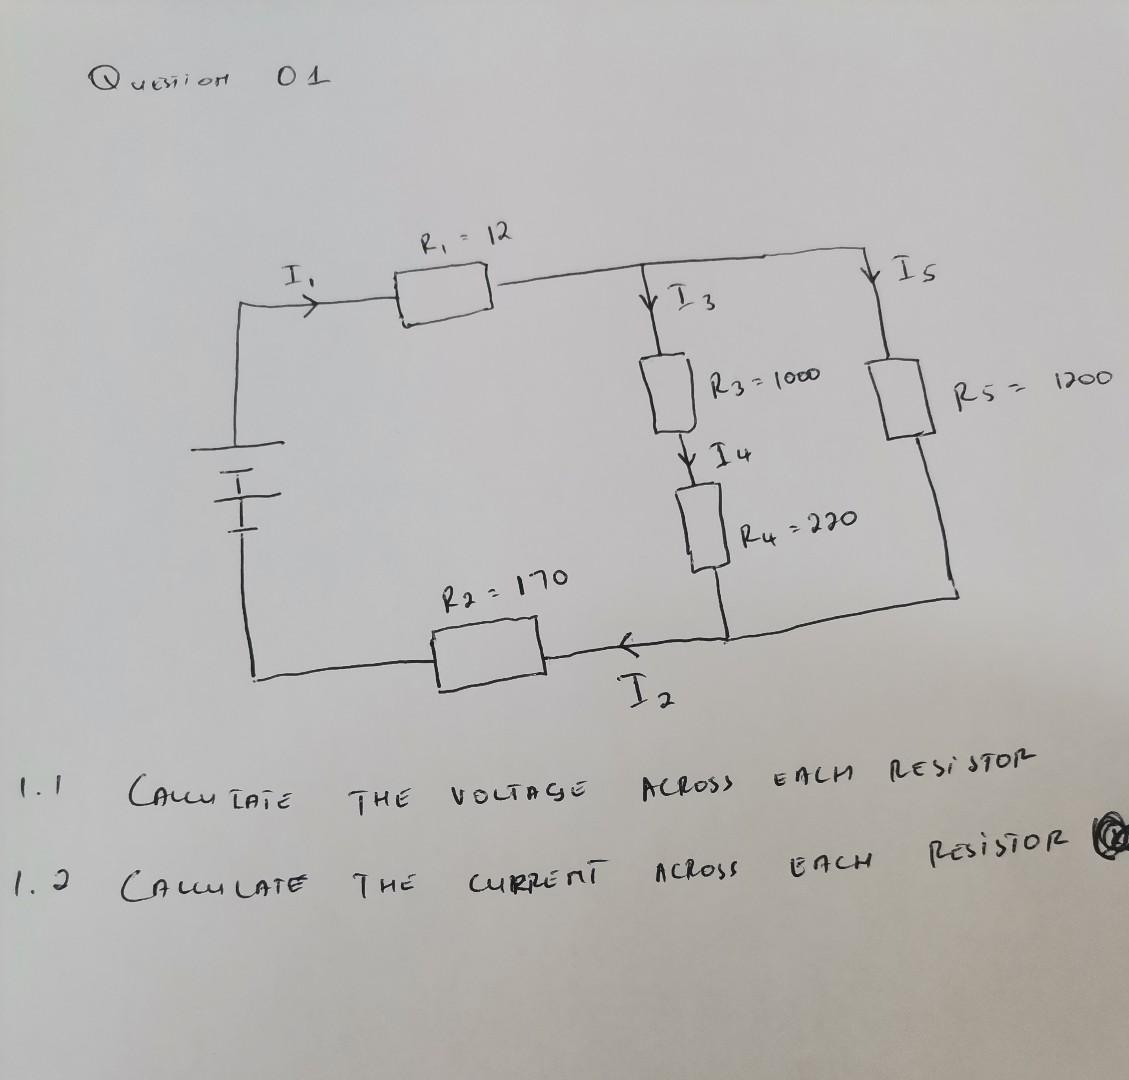 Question 01
R1 = 12
I1
I5
I3
R3 = 1000
R5 = 1200
I4
R4 = 220
R2 = 170
I2
1.1 CALCULATE THE VOLTAGE ACROSS EACH RESISTOR
1.2 CALCULATE THE CURRENT ACROSS EACH RESISTOR